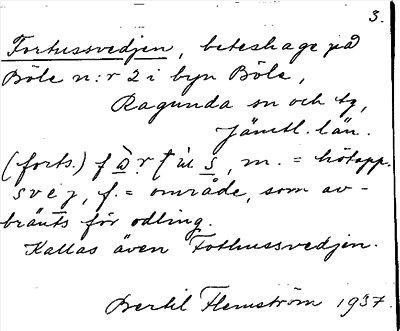 3.
Fortussvedjen, beteshage på
Böle n:r 2 i byn Böle,
Ragunda sn och tg,
Jämtl. län.
(forts.) f a r t u s, m. = hötapp.
svej, f. = område, som av-
bränts för odling.
Kallas även Fothussvedjen.
Bertil Flemström 1937.